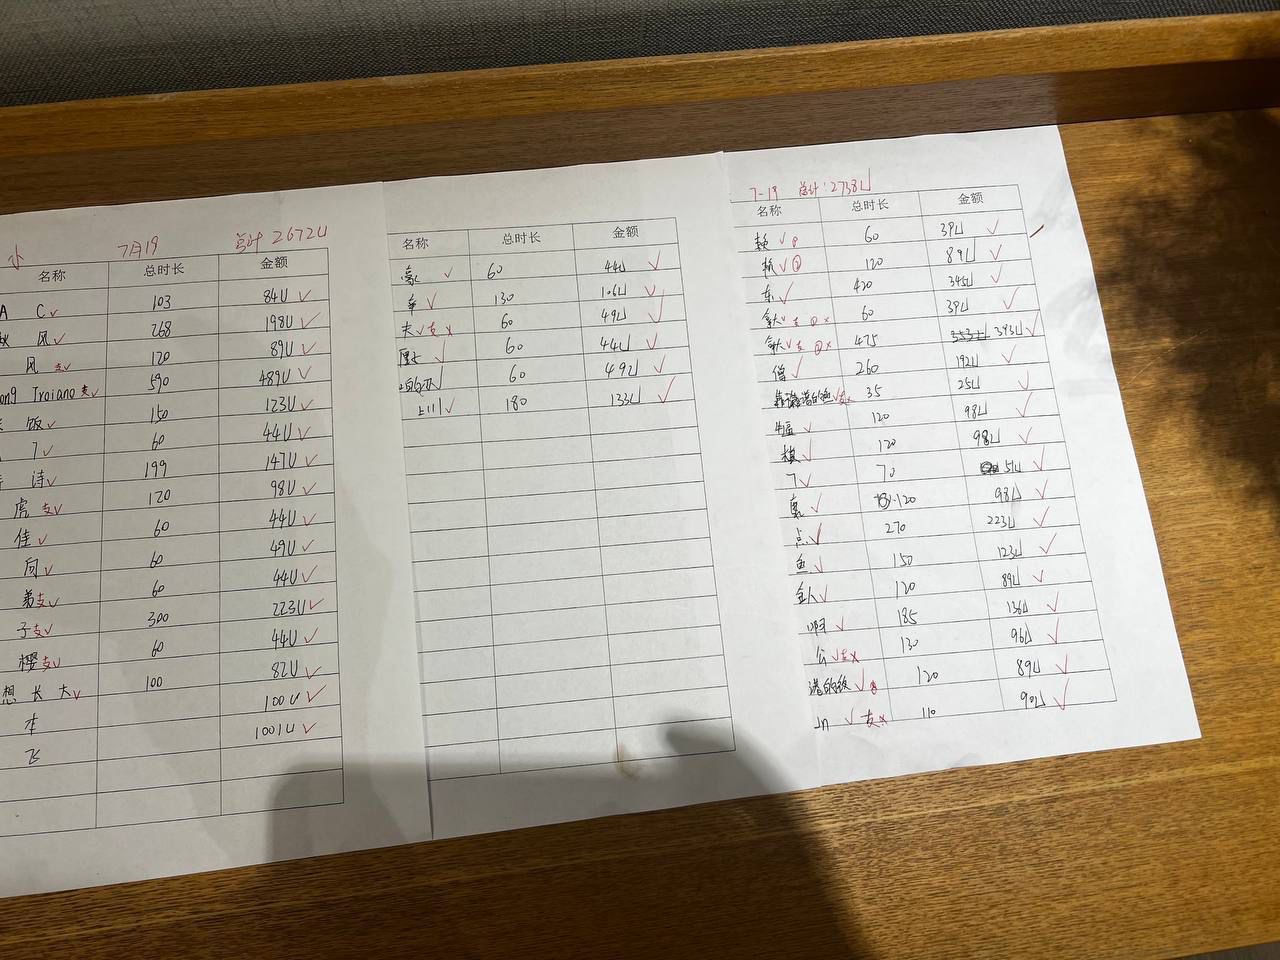 小 7月19 总计 2672U
名称 总时长 金额
A C 103 84U
风 268 198U
风 支 120 89U
ong Troiano 支 590 489U
饭 150 123U
7 60 44U
诗 199 147U
虎 支 120 98U
佳 60 44U
向 60 49U
弟 支 60 44U
子 支 300 223U
樱 支 60 44U
想 长 大 100 82U
本 100U
飞 1001U
名称 总时长 金额
豪 60 44U
辛 130 106U
夫 支 x 60 49U
60 44U
60 49U
上川 180 133U
7-19 总计: 2738U
名称 总时长 金额
60 39U
120 89U
东 420 345U
支 60 39U
支 475 393U
僧 260 192U
支 35 25U
幅 120 98U
棋 120 98U
7 70 51U
120 98U
点 270 223U
鱼 150 123U
金人 120 89U
啊 185 136U
公 支x 130 96U
港的 120 89U
支x 110 90U